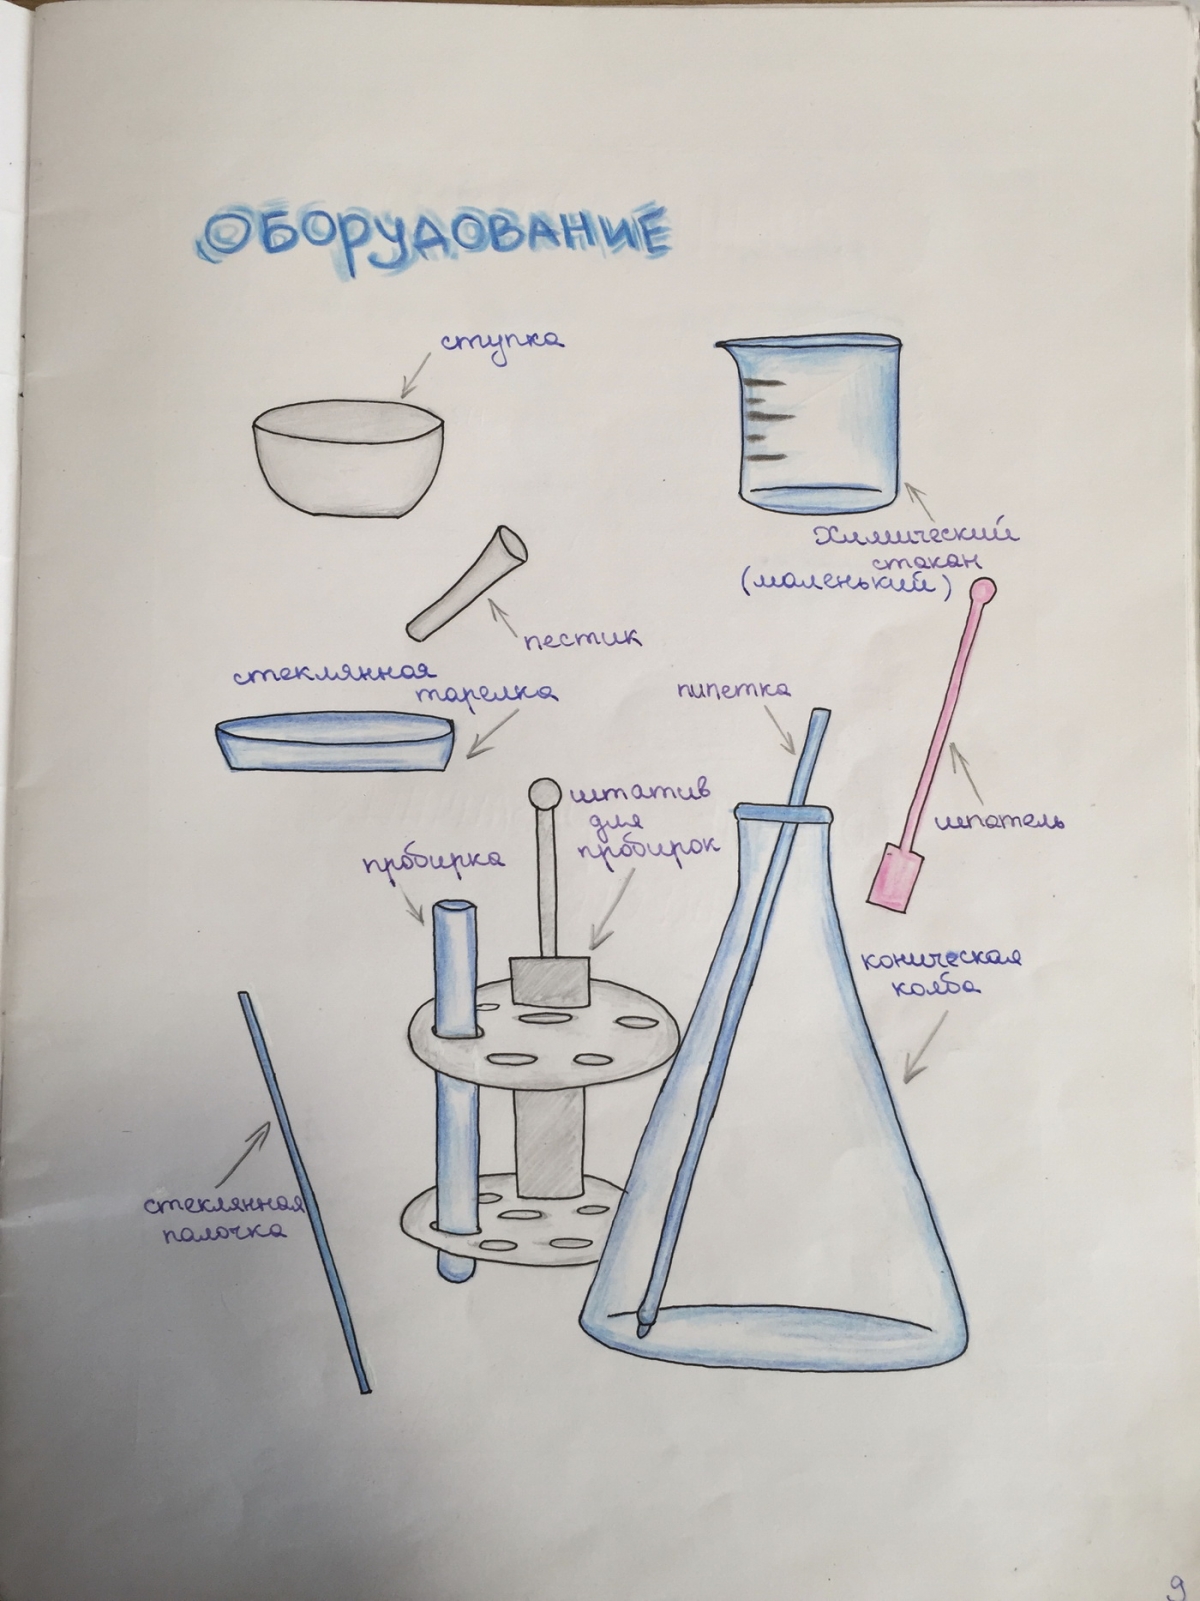 ОБОРУДОВАНИЕ
ступка
Химический
стакан
(маленький)
пестик
стеклянная
тарелка
пипетка
шпатель
штатив
для
пробирок
пробирка
коническая
колба
стеклянная
палочка
9